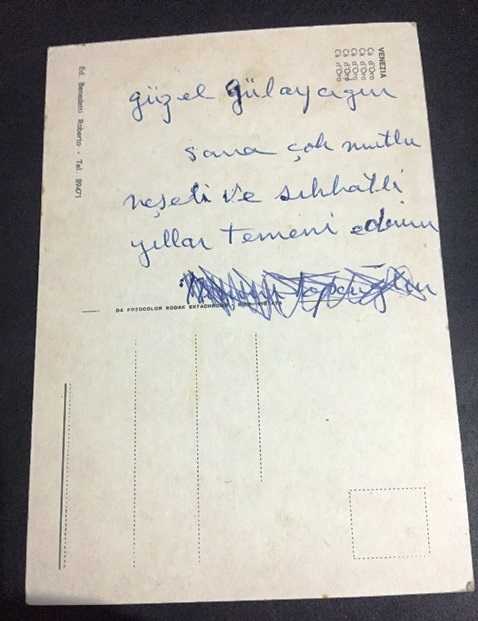 VENEZIA
Cà d'Oro
Cà d'Oro
Cà d'Oro
Cà d'Oro
Cà d'Oro
Ed. Benedetti Roberto - Tel. 89471
güzel gülaycıgım
sana çok mutlu
neşeli ve sıhhatli
yıllar temeni ederim
DA FOTOCOLOR KODAK EKTACHROME